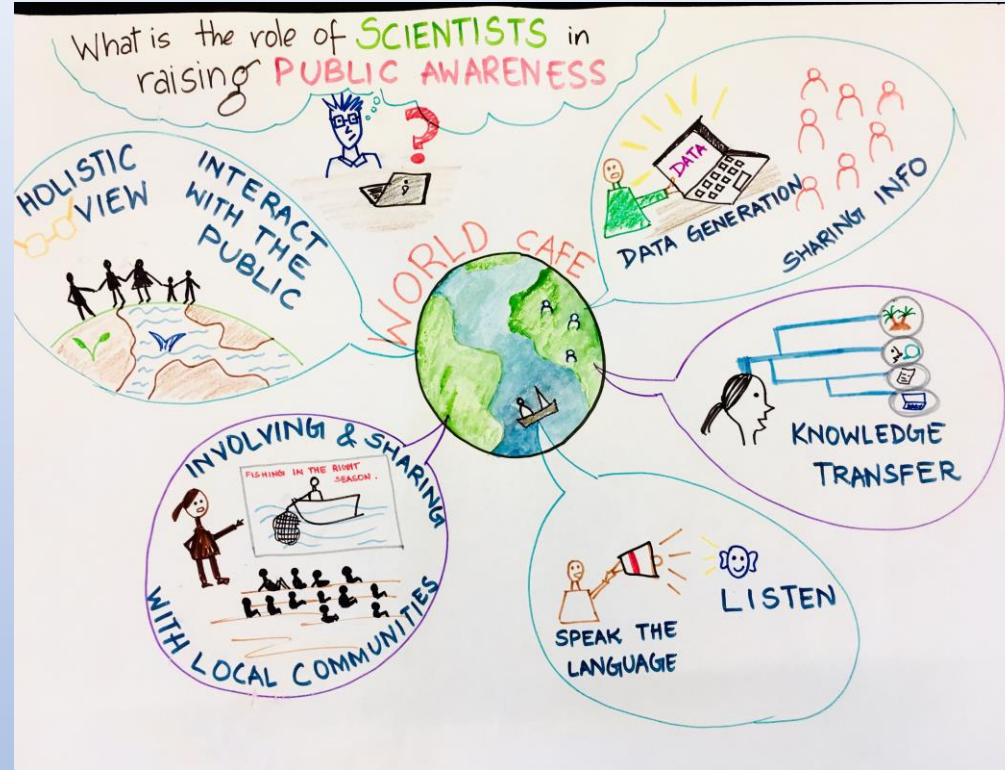 What is the role of SCIENTISTS in
raising PUBLIC AWARENESS
?
HOLISTIC
VIEW
INTERACT
WITH THE
PUBLIC
WORLD CAFE
DATA
DATA GENERATION
SHARING INFO
KNOWLEDGE
TRANSFER
INVOLVING & SHARING
FISHING IN THE RIGHT
SEASON.
WITH LOCAL COMMUNITIES
SPEAK THE
LANGUAGE
LISTEN